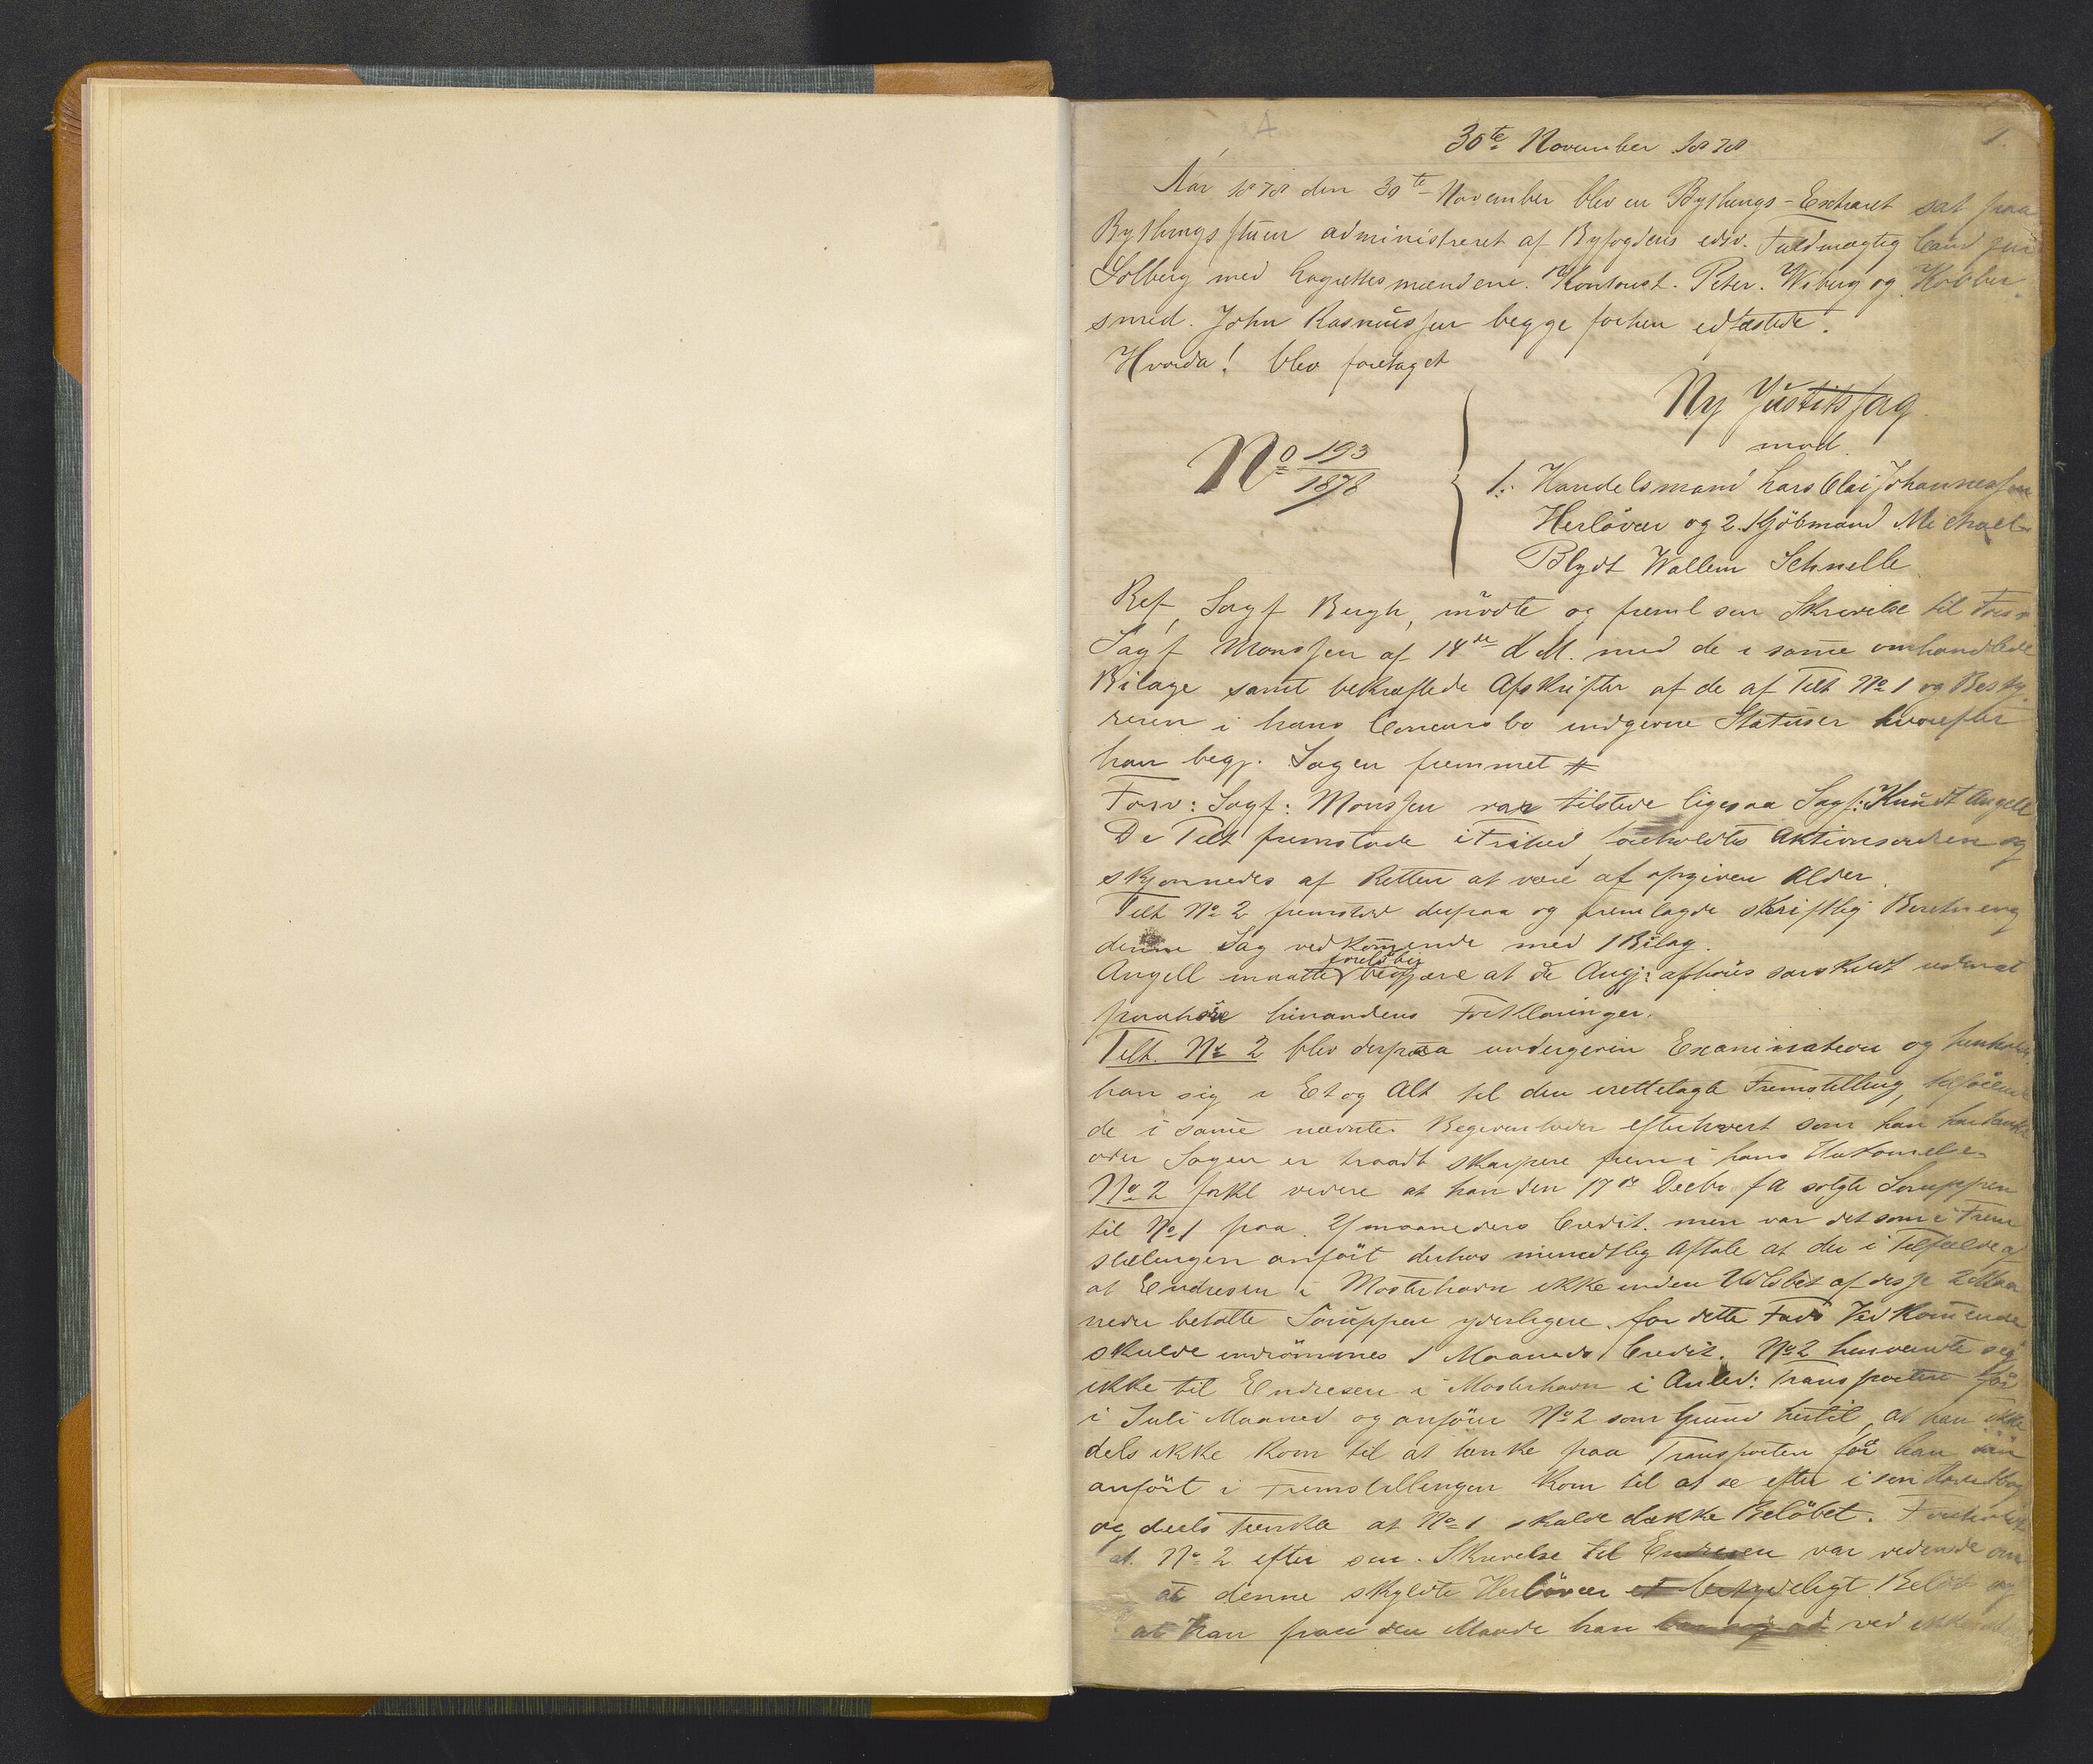 30te November 1878
1.
Aar 1878 den 30te November blev en Bythings-Extraret sat paa
Bythingsstuen administreret af Byfogdens edsv. Fuldmægtig Cand jur
Solberg med Lagrettesmændene Kontorist. Peter. Wiberg og Kobber
smed. John Rasmussen begge forhen edfæstede.
Hvorda! blev foretaget
Ny Justitssag
mod
No 193/1878
1: Handelsmand Lars Olai Johannessen
Herløvær og 2. Kjöbmand Michael
Blydt Wallem Schnelle
Ref, Sagf Bergh, mödte og freml sin Skrivelse til Forsv
Sagf Monssen af 14de d M. med de i samme omhandlede
Bilage samt bekræftede Afskrifter af de af Tilt No 1 og Besty
reren i hans Concursbo indgivne Statuser hvorefter
han begj. Sagen fremmet #
Forsv: Sagf: Monssen var tilstede ligesaa Sagf: Knudt Angell
De Tilt fremstode i Frihed, foreholdtes Aktionsordren og
skjønnedes af Retten at være af opgiven Alder.
Tilt No 2 fremstod derpaa og fremlagde skriftlig Beretning
denne Sag vedkommende med 1 Bilag.
Angell maatte foreløbig begjære at de Angj: afhøres særskildt uden at
paahøre hinandens Forklaringer.
Tilt. No 2 blev derpaa undergiven Examination og henholdt
han sig i Et og Alt til den irettelagte Fremstilling, tilføiende
de i samme nævnte Begivenheder efterhvert som han har tænkt
over Sagen er traadt skarpere frem i hans Hukommelse.
No 2 forkl videre at han den 17de Decbr f A solgte Sluppen
til No 1 paa 2 maaneders Credit. men var det som i Frem
stillingen anfört derhos mundtlig Aftale at der i Tilfælde af
at Endresen i Mosterhavn ikke inden Udløbet af disse 2 Maa
neder betalte Sluppen yderligere for dette Fads Vedkommende
skulde indrömmes 1 Maaneds Credit. No 2 henvendte sig
ikke til Endresen i Mosterhavn i Anled: Transporten för
i Juli Maaned og anförer No 2 som Grund hertil, at han ikke
dels ikke kom til at tænke paa Transporten för han som
anfört i Fremstillingen kom til at se efter i sin Hovedbog
og deels tænkte at No 1 skulde dække Belöbet. Foreholdt
at No 2 efter sin Skrivelse til Endresen var vidende om
at denne skyldte Herløvær et betydeligt Beløb og
at han paa den Maade han bar sig ad ved ikke